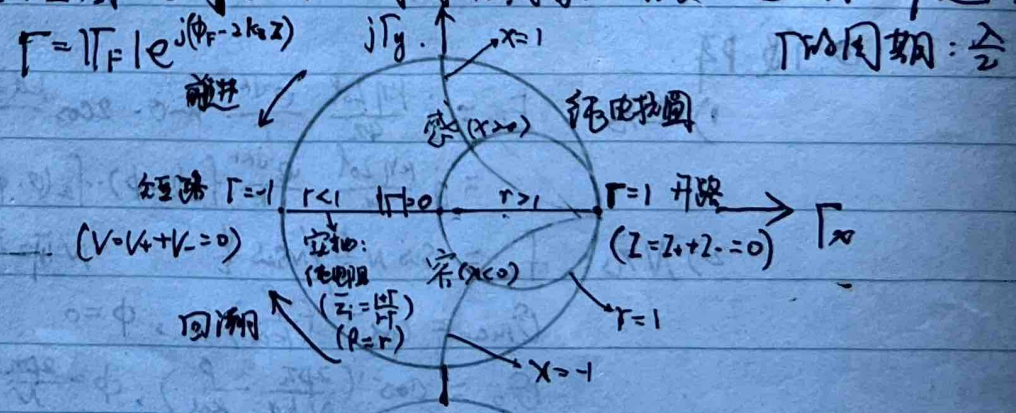 Γ=|Γ_F|e^{j(φ_F-2k_z z)}
jΓy.
x=1
Γ的周期:λ/2
前进
感(x>0)
纯电抗圆
短路 Γ=-1
r<1
|Γ|=0
r>1
Γ=1 开路
Γx
(V=V₊+V₋=0)
实轴:
纯电阻
(z̄ᵢ=\frac{1+Γ}{1-Γ})
(R=r)
容(x<0)
(I=I₊+I₋=0)
回溯
r=1
x=-1